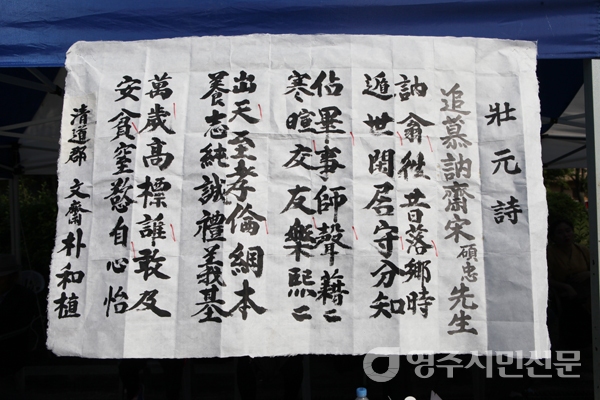 壯元詩
追慕訥齋宋碩忠先生
訥翁後昔落鄉時
遁世閑居守分知
佔畢事師聲藉〻
寒暄交友樂熙〻
出天至孝倫綱本
養志純誠禮義基
萬歲高標誰敢及
安貧窒慾自心怡
清道郡 文齋 朴和植
영주시민신문